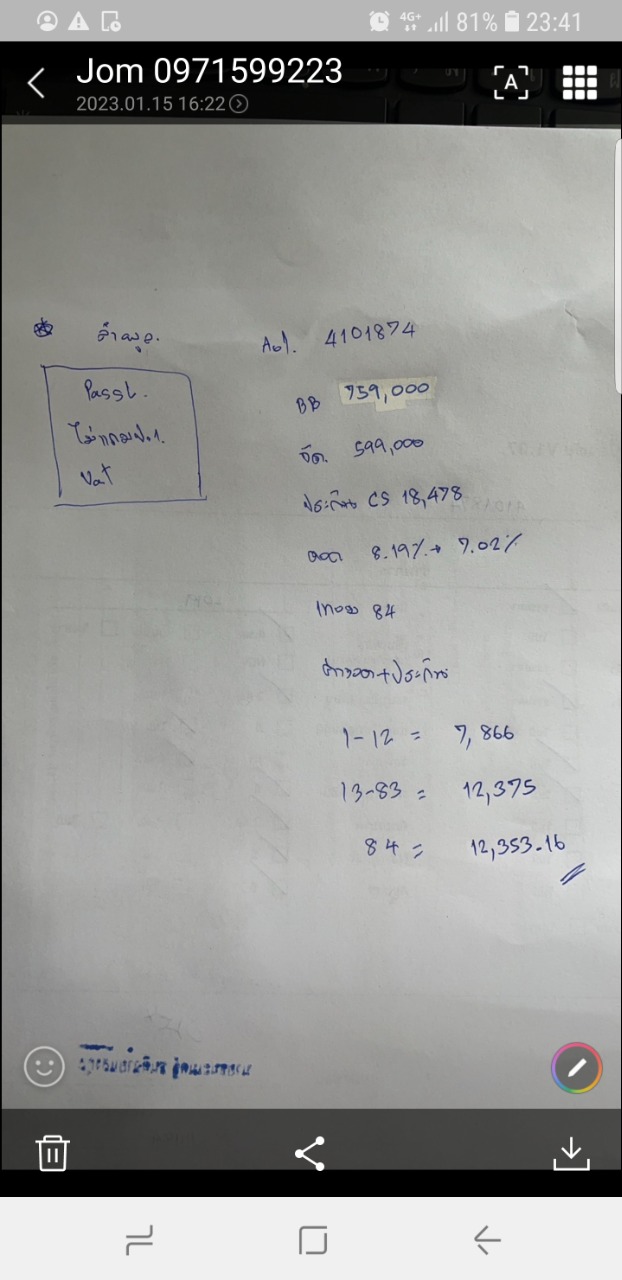 4G+ 81% 23:41
Jom 0971599223
2023.01.15 16:22
A
ลำพูล.
Passt.
Vat
4101874
BB 759,000
จัด. 599,000
ประกัน CS 18,478
ดอก 8.19% → 7.02%
84
ค่างวด+ประกัน
1-12 = 7,866
13-83 = 12,375
84 = 12,353.16